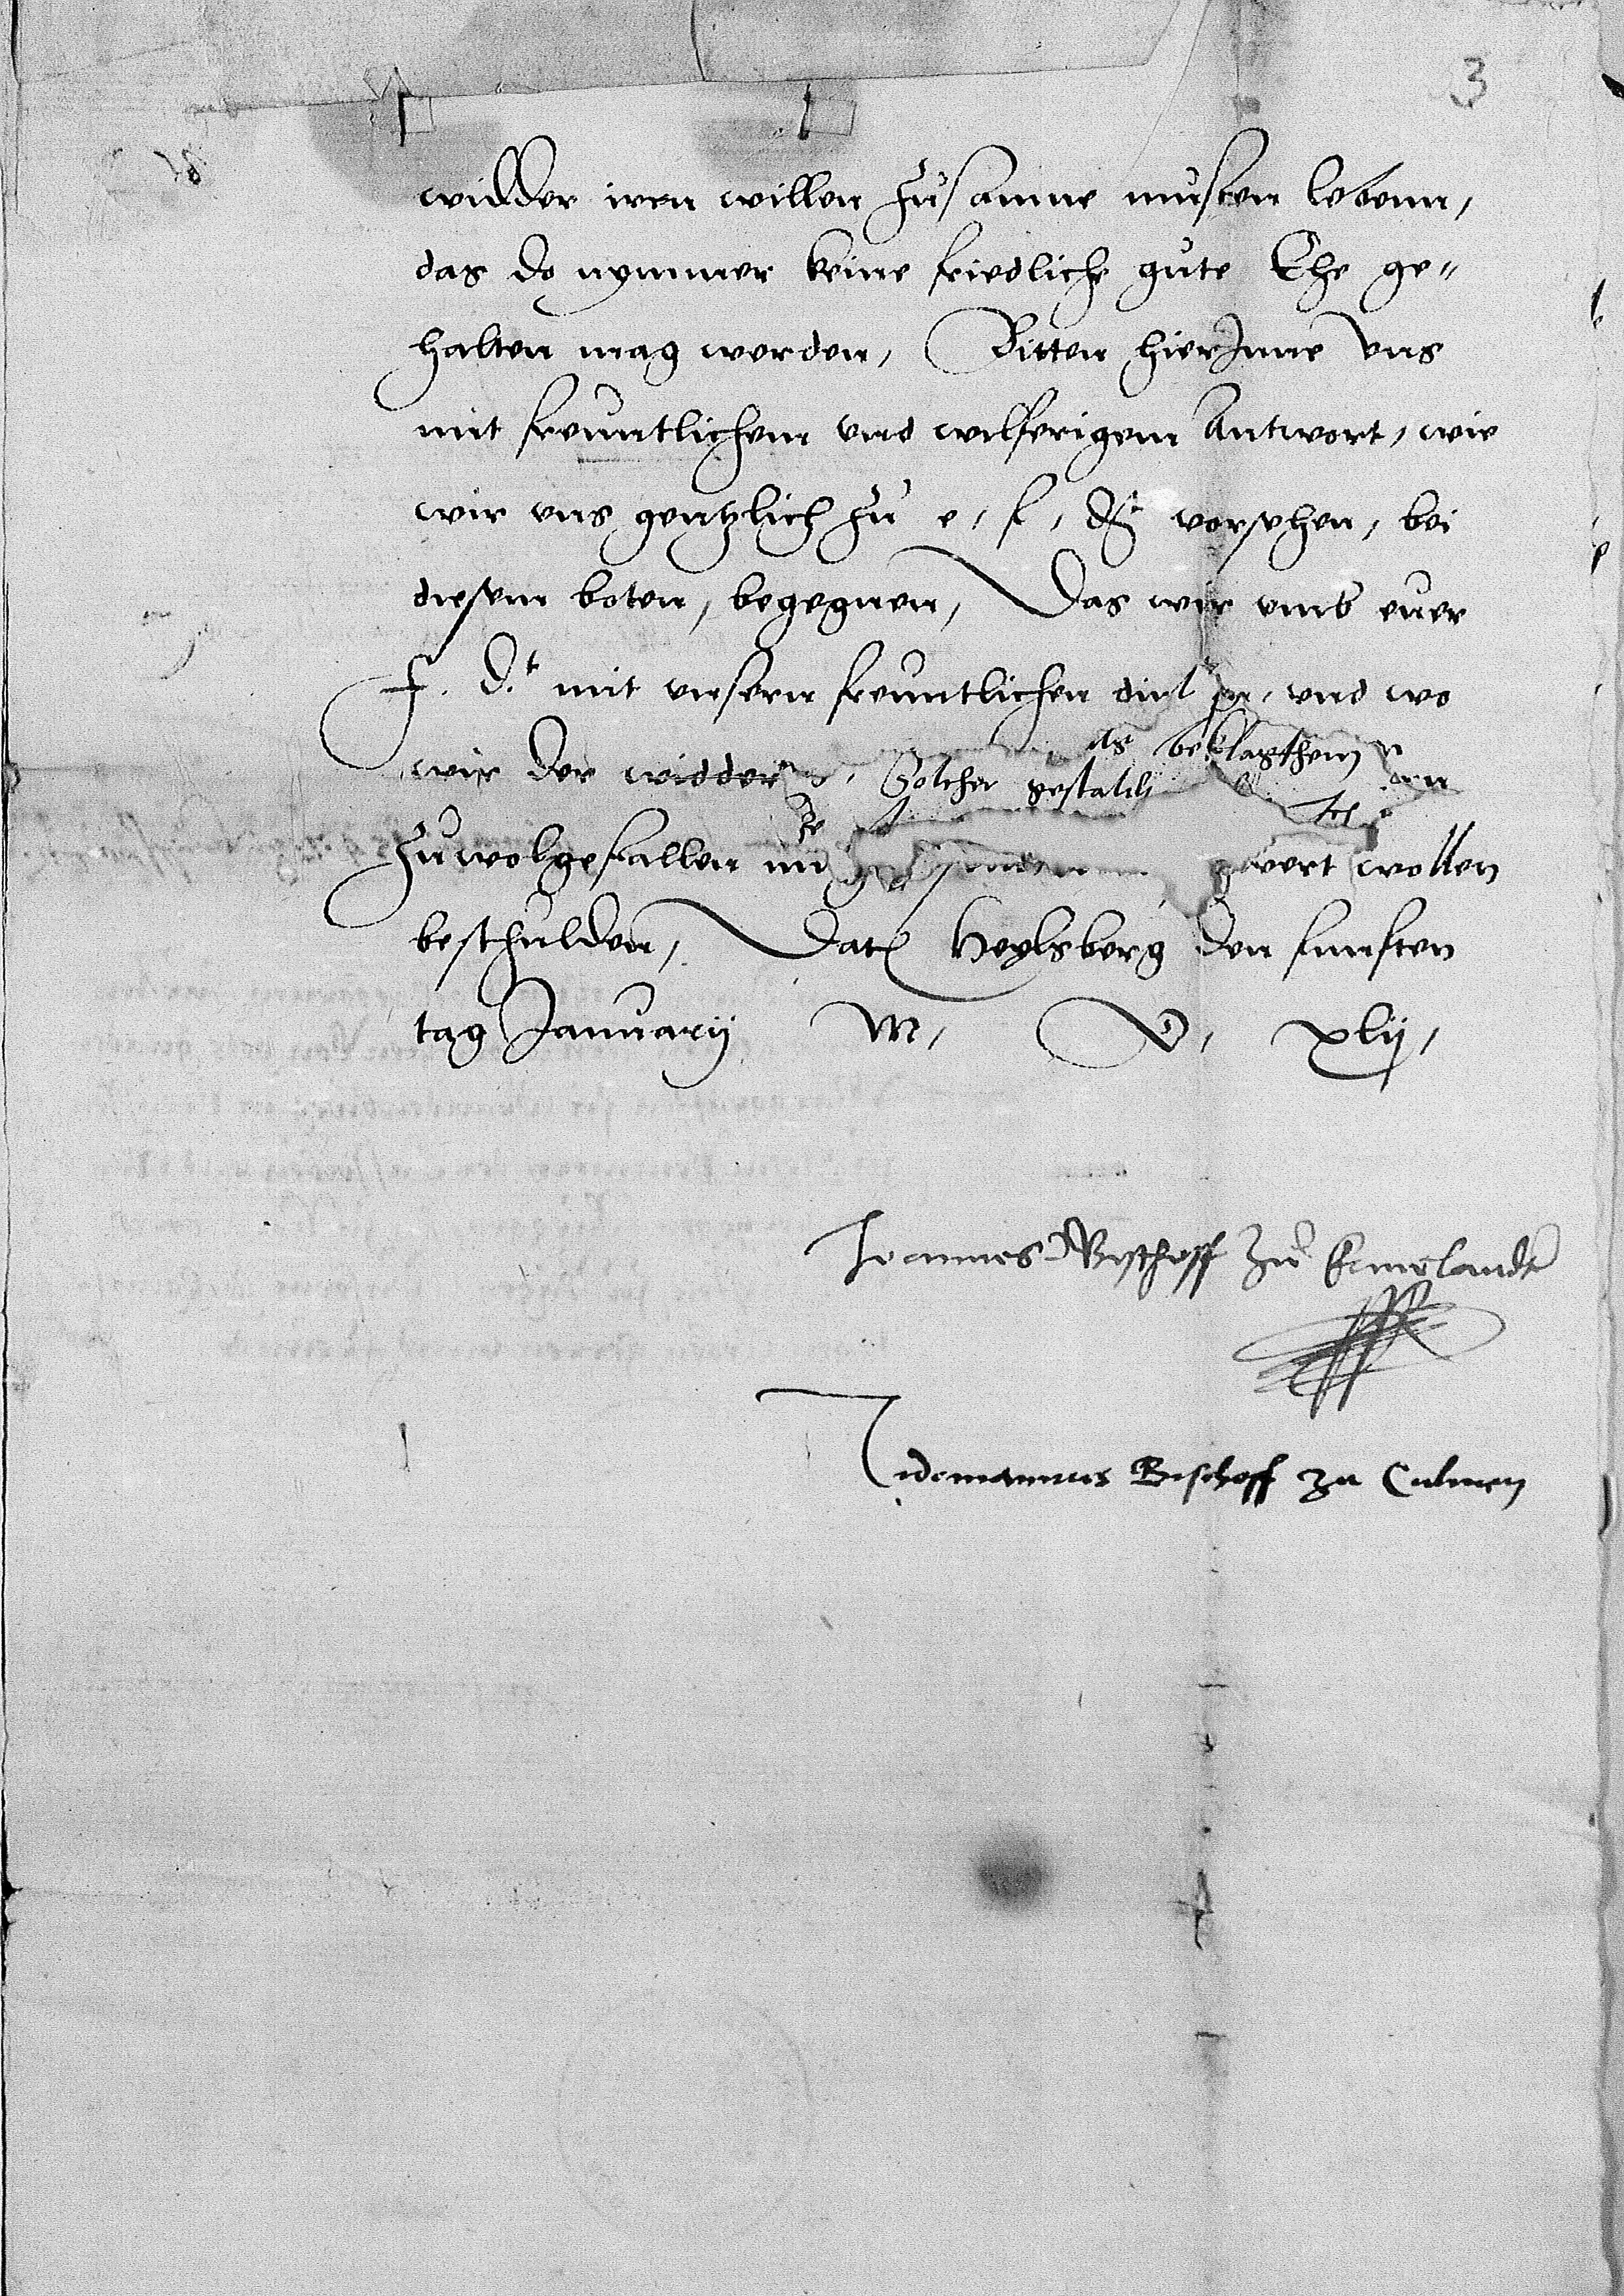 3
widder iren willen zusamne musten lebenn,
das do nymmer keine friedliche gute Ehe ge=
halten mag werden, Bitten hierInne vns
mit freuntlichem vnd wilferigem Antwort, wie
wir vns gentzlich zu e, f, dt vorsehen, bei
diesem boten, begegnen, Das wir vmb euer
f. d.t mit vnsern freuntlichen vnd wo
beklagthem
wir der widder Solcher
zuwolgefallen wert wollen
beschulden, Dat Heylsberg den funften
tag Januarij M, D, xlij,
Joannes Bischoff zu Ermelandt
Tidemannus Bischoff zu Culmen